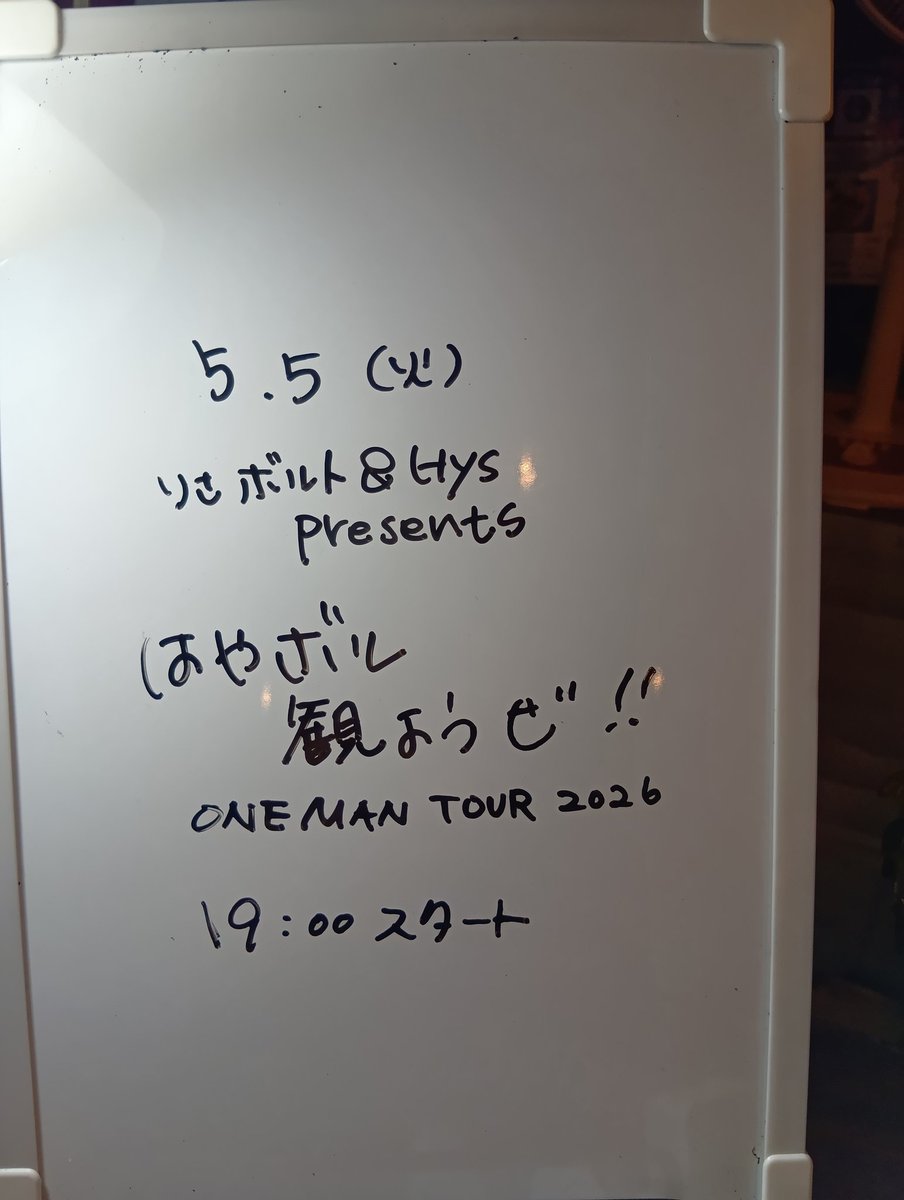 5.5 (火)
りさボルト&Hys
presents
はやざバル
観ようぜ!!
ONEMAN TOUR 2026
19:00 スタート